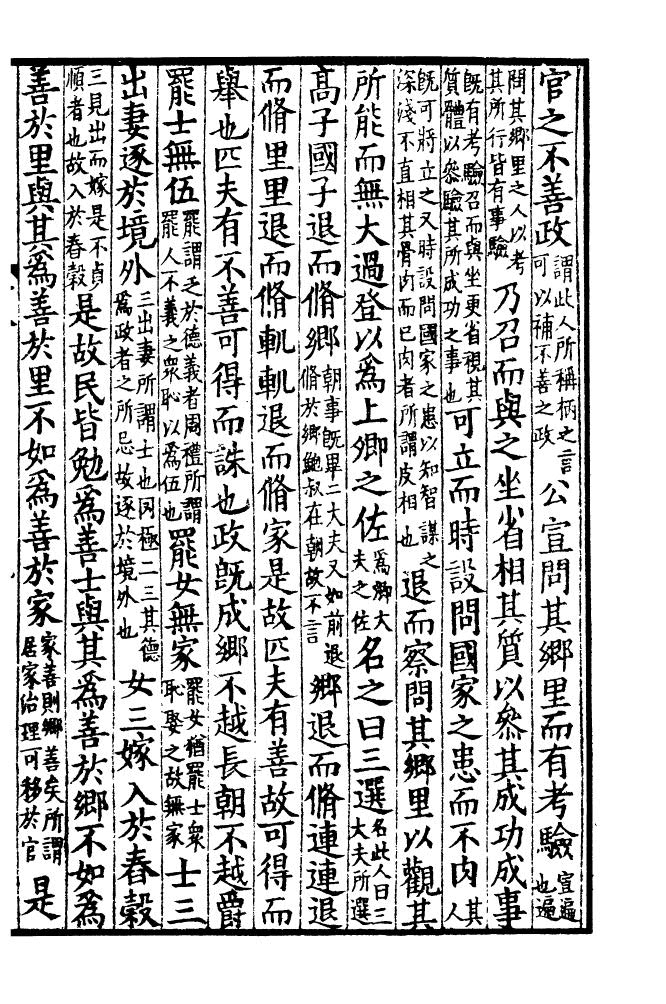 官之不善政謂此人所稱柄之言可以補不善之政公宣問其鄉里而有考驗宣遍也遍
問其鄉里之人以考其所行皆有事驗乃召而與之坐省相其質以叅其成功成事
既有考驗召而與坐更省視其質體以叅驗其所成功之事也可立而時設問國家之患而不肉其人
既可將立之又時設問國家之患以知智謀之深淺不直相其骨肉而已肉者所謂皮相也退而察問其鄉里以觀其
所能而無大過登以爲上卿之佐爲卿大夫之佐名之曰三選名此人曰三大夫所選
高子國子退而脩鄉朝事既畢二大夫又如前退脩於鄉鮑叔在朝故不言鄉退而脩連連退
而脩里里退而脩軌軌退而脩家是故匹夫有善故可得而
舉也匹夫有不善可得而誅也政既成鄉不越長朝不越爵
罷士無伍罷謂乏於德義者周禮所謂罷人不義之衆恥以爲伍也罷女無家罷女猶罷士衆恥娶之故無家士三
出妻逐於境外三出妻所謂士也罔極二三其德爲政者之所忌故逐於境外也女三嫁入於舂穀
三見出而嫁是不貞順者也故入於舂穀是故民皆勉爲善士與其爲善於鄉不如爲
善於里與其爲善於里不如爲善於家家善則鄉善矣所謂居家治理可移於官是